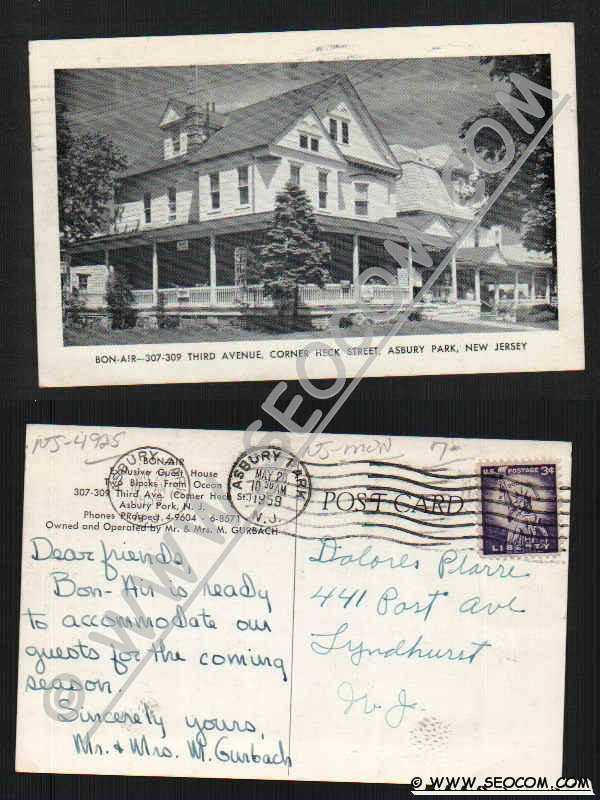 BON-AIR—307-309 THIRD AVENUE, CORNER HECK STREET, ASBURY PARK, NEW JERSEY
© WWW.SEOCOM.COM
NJ-4925
NJ-MON
7-
BON-AIR
Exclusive Guest House
Two Blocks From Ocean
307-309 Third Ave. (Corner Heck St.)
Asbury Park, N. J.
Phones PRospect 4-9604 - 6-8571
Owned and Operated by Mr. & Mrs. M. GURBACH
ASBURY PARK
ASBURY PARK
MAY 26
10 30 AM
1959
N.J.
POST CARD
U.S. POSTAGE 3¢
LIBERTY
Dear friends,
Bon-Air is ready
to accommodate our
guests for the coming
season.
Sincerely yours,
Mr. & Mrs. M. Gurbach
Dolores Plarre
441 Post Ave
Lyndhurst
N. J.
© WWW.SEOCOM.COM
© WWW.SEOCOM.COM